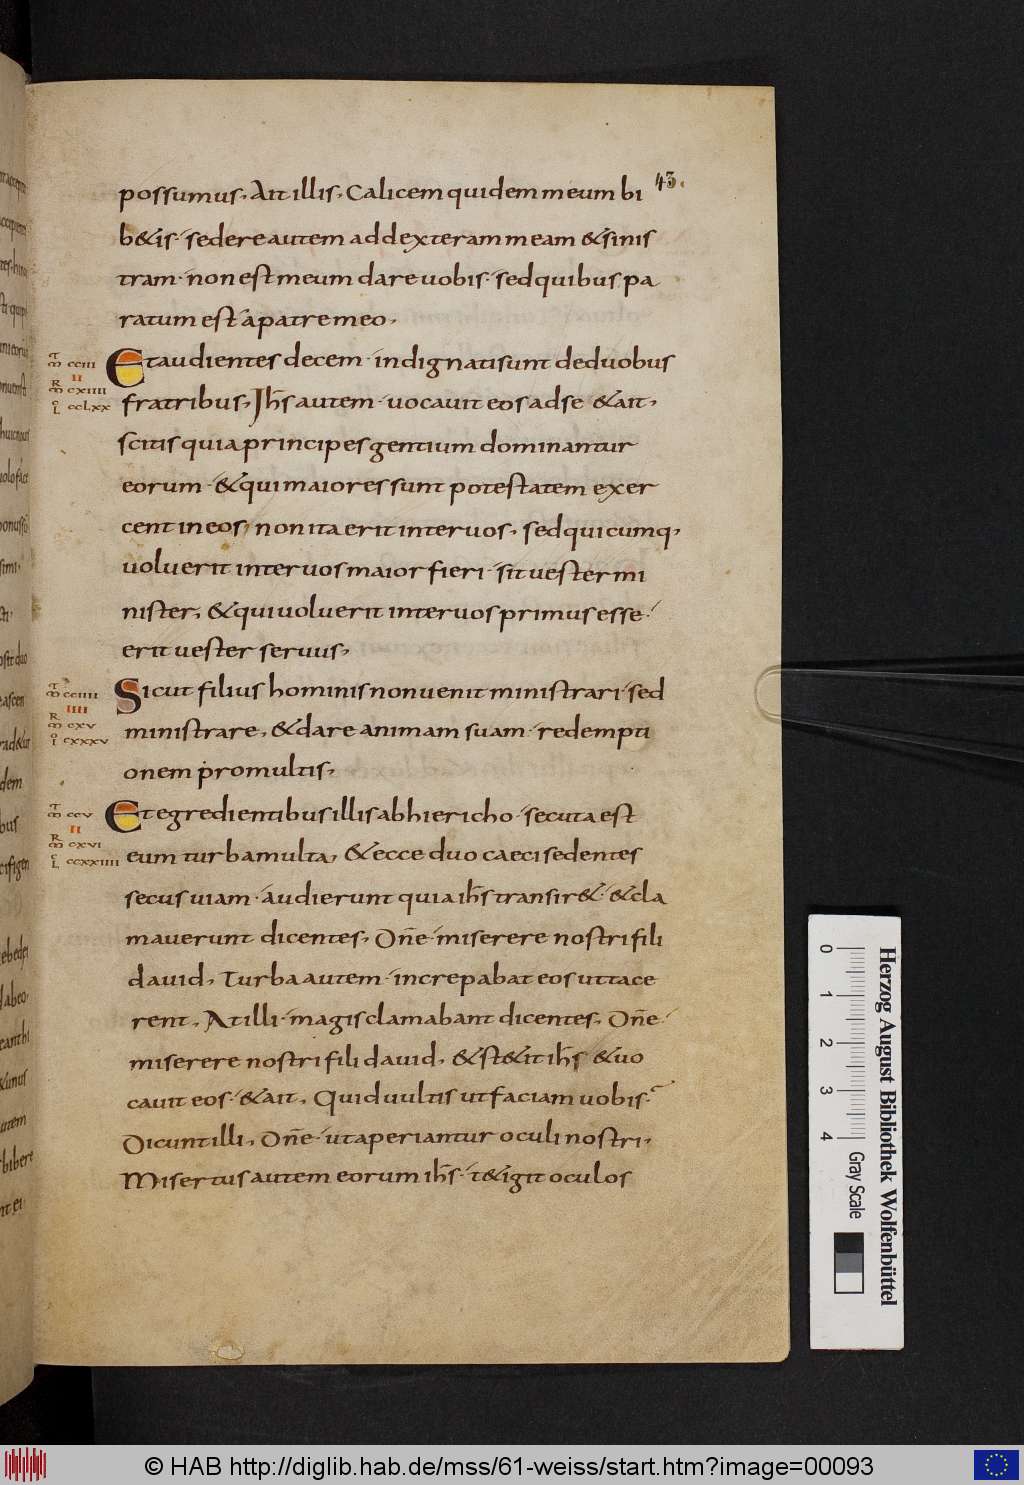 43.
possumus, Ait illis, Calicem quidem meum bi
b&is· sedere autem ad dexteram meam & sinis
tram· non est meum dare uobis· sed quibus pa
ratum est a patre meo,
Et audientes decem· indignati sunt de duobus
fratribus, Ih̅s autem· uocauit eos ad se & ait,
scitis quia principes gentium dominantur
eorum· & qui maiores sunt potestatem exer
cent in eos, non ita erit inter uos, sed quicumq,
uoluerit inter uos maior fieri· sit uester mi
nister, & qui uoluerit inter uos primus esse·
erit uester seruus,
Sicut filius hominis non uenit ministrari· sed
ministrare, & dare animam suam· redempti
onem pro multis,
Et egredientibus illis ab hiericho· secuta est
eum turba multa, & ecce duo caeci sedentes
secus uiam· audierunt quia ih̅s transir&· & cla
mauerunt dicentes, Dn̅e· miserere nostri fili
dauid, Turba autem· increpabat eos ut tace
rent, At illi· magis clamabant dicentes, Dn̅e·
miserere nostri fili dauid, & st&it ih̅s & uo
cauit eos· & ait, Quid uultis ut faciam uobis?
Dicunt illi, Dn̅e· ut aperiantur oculi nostri,
Misertus autem eorum ih̅s· t&igit oculos
CCIII
II
CXIIII
CCLXX
CCIIII
IIII
CXV
CXXXV
CCV
II
CXVI
CCXXIIII
0 1 2 3 4
Gray Scale
Herzog August Bibliothek Wolfenbüttel
© HAB http://diglib.hab.de/mss/61-weiss/start.htm?image=00093